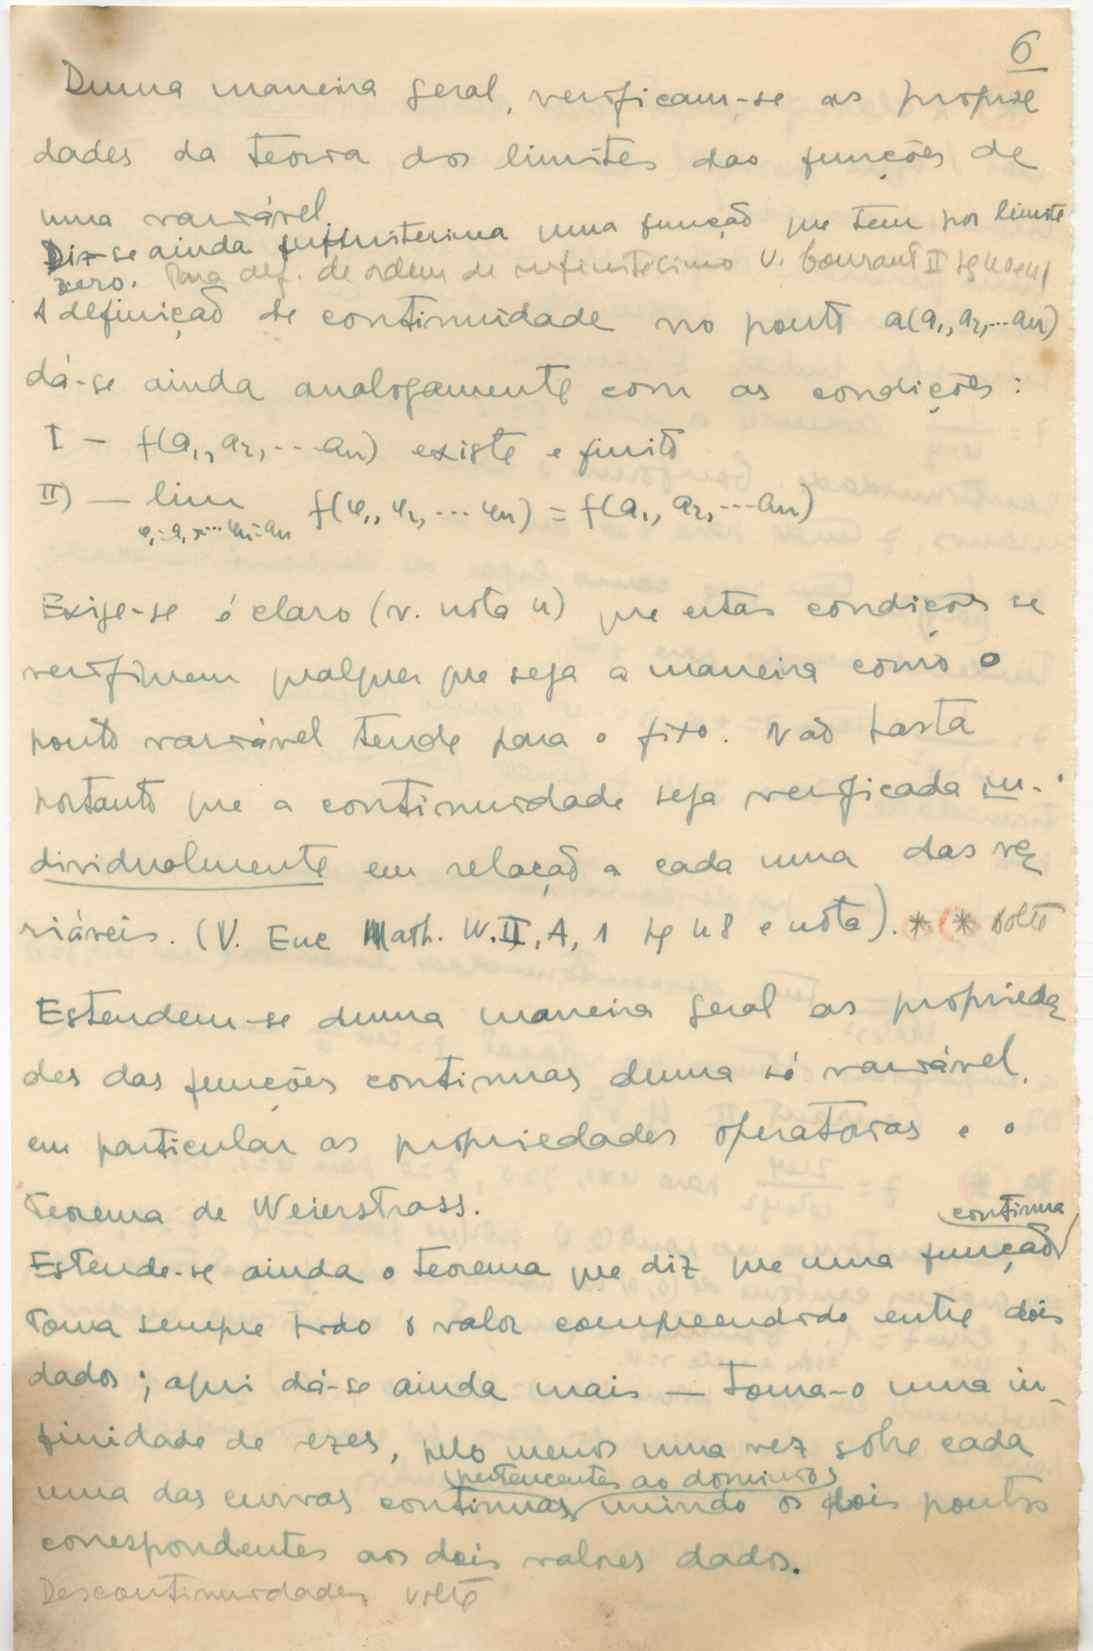 6
Duma maneira geral, verificam-se as proprie
dades da teoria dos limites das funções de
uma variável.
Diz-se ainda infinitesima uma função que tem por limite
zero. Para def. de ordem de infinitesimo v. Courant II
A definição de continuidade no ponto a(a₁, a₂, ... aₙ)
dá-se ainda analogamente com as condições:
I - f(a₁, a₂, ... aₙ) existe e finito
II) - lim f(φ₁, φ₂, ... φₙ) = f(a₁, a₂, ... aₙ)
φ₁=a₁, ... φₙ=aₙ
Exige-se é claro (v. nota 4) que estas condições se
verifiquem qualquer que seja a maneira como o
ponto variável tende para o fixo. Não basta
portanto que a continuidade seja verificada in-
dividualmente em relação a cada uma das va
riáveis. (V. Enc Math. W. II, A, 1 pg 48 e nota). * * volte
Estendem-se duma maneira geral as proprieda
des das funções continuas duma só variável,
em particular as propriedades operatorias e o
Teorema de Weierstrass.
continua
Estende-se ainda o teorema que diz que uma função
toma sempre todo o valor compreendido entre dois
dados; aqui dá-se ainda mais — toma-o uma in-
finidade de vezes, pelo menos uma vez sobre cada
pertencentes ao dominio
uma das curvas continuas unindo os dois pontos
correspondentes aos dois valores dados.
Descontinuidades volte